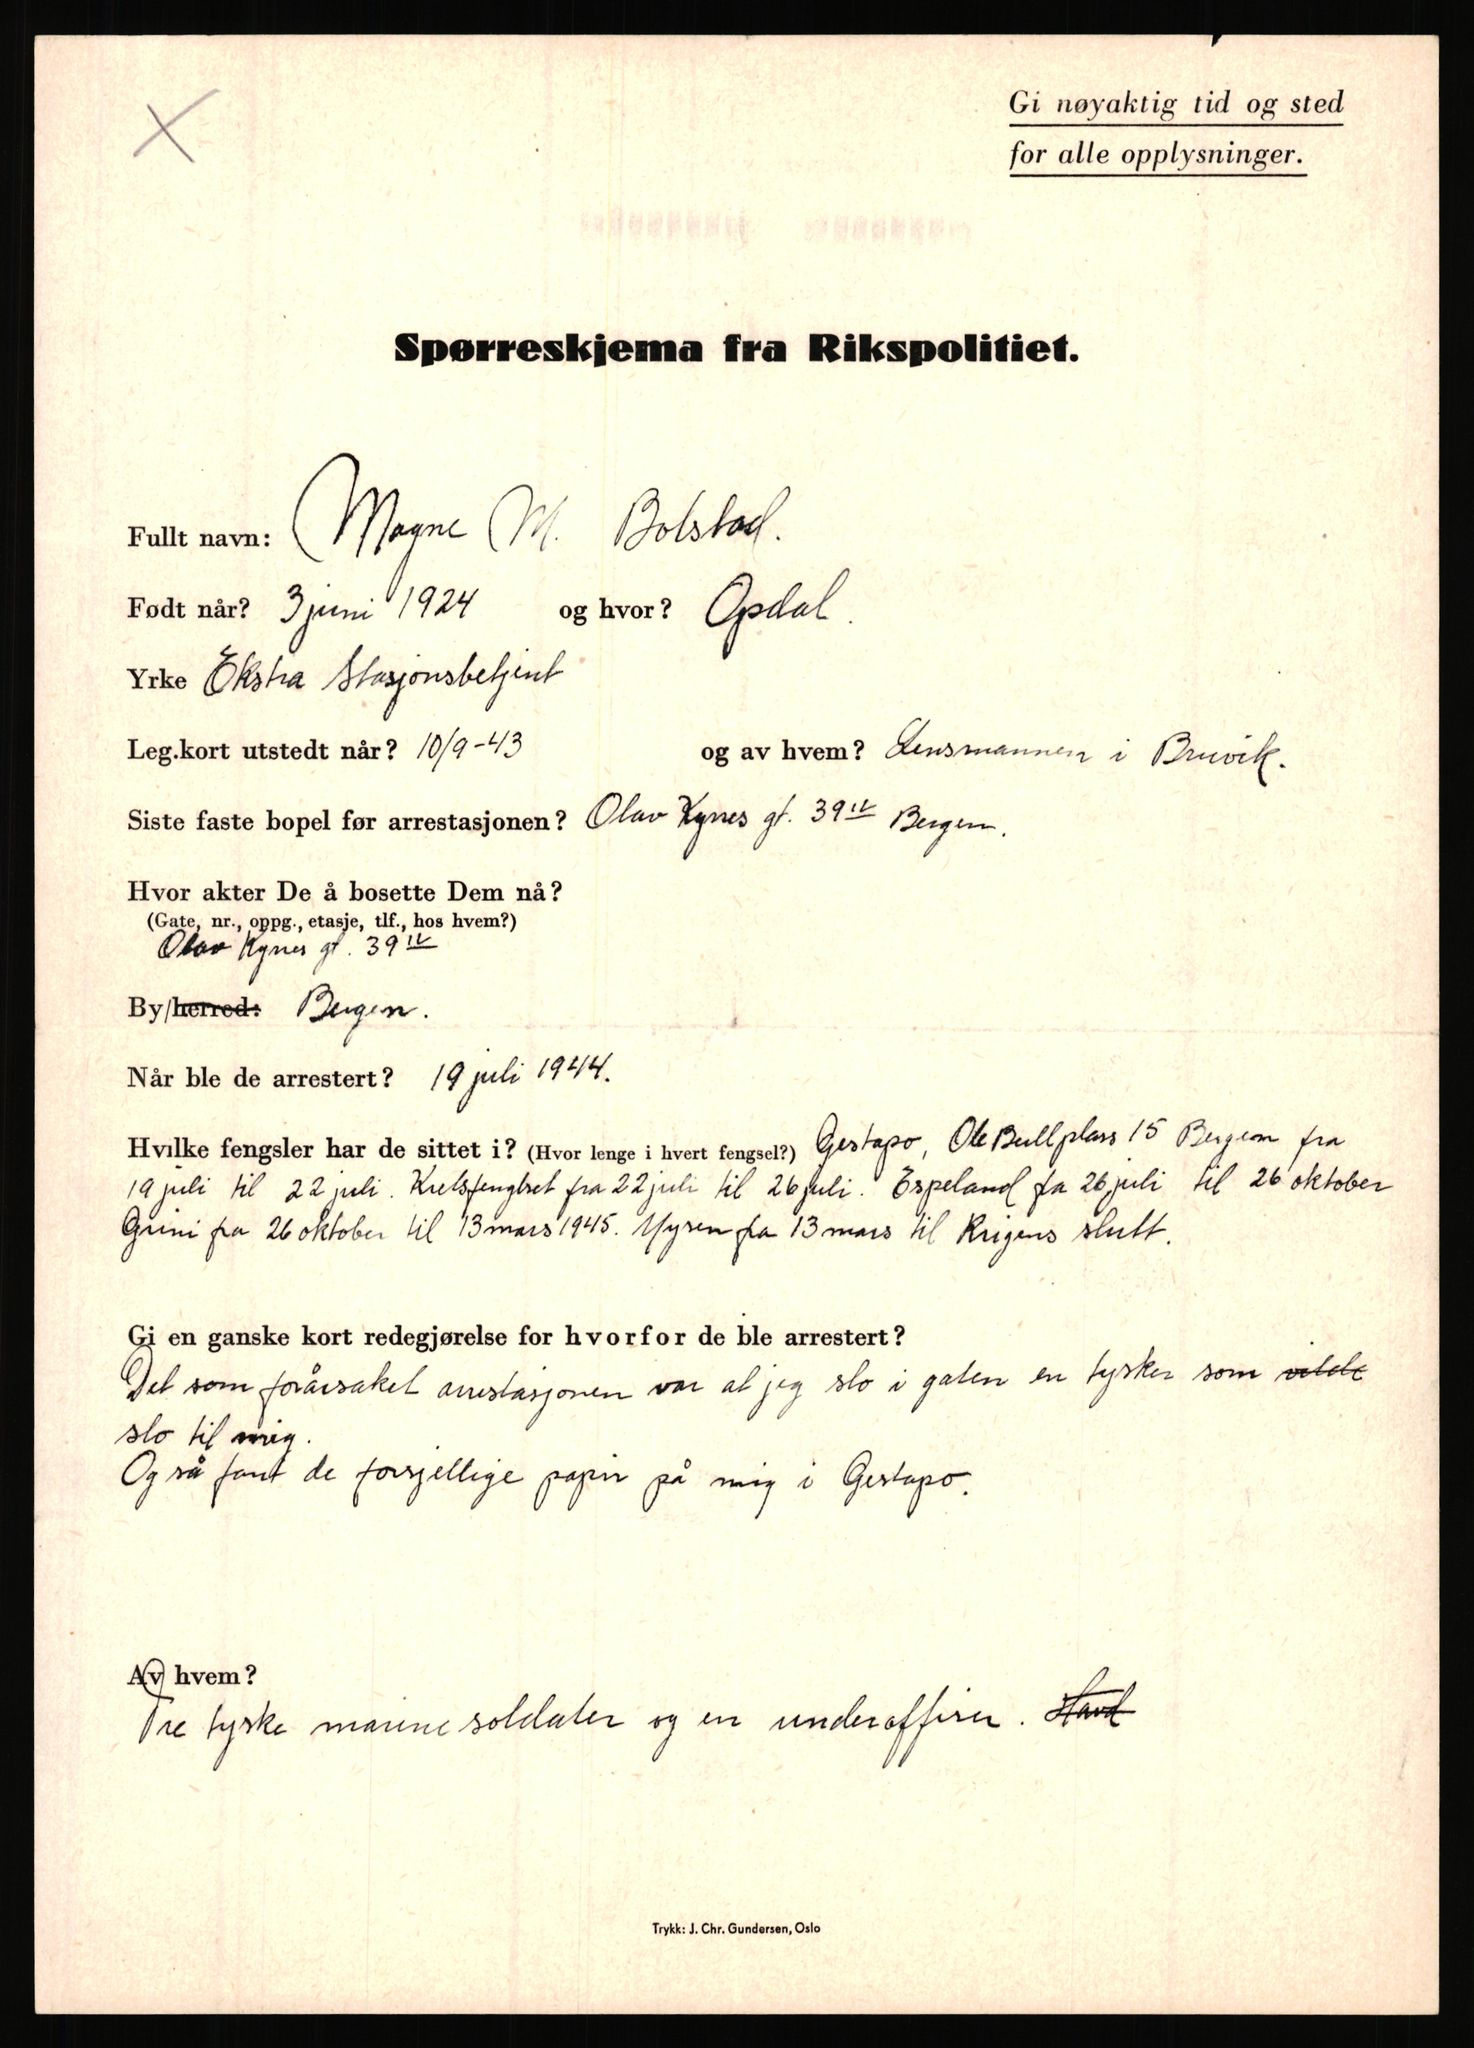 Gi nøyaktig tid og sted
for alle opplysninger.
Spørreskjema fra Rikspolitiet.
Fullt navn: Magne M. Bolstad.
Født når? 3 juni 1924 og hvor? Opdal.
Yrke Ekstra Stasjonsbetjent
Leg.kort utstedt når? 10/9-43 og av hvem? Lensmannen i Bruvik.
Siste faste bopel før arrestasjonen? Olav Kyrres gt. 39 Bergen.
Hvor akter De å bosette Dem nå?
(Gate, nr., oppg., etasje, tlf., hos hvem?)
Olav Kyrres gt. 39
By/herred: Bergen.
Når ble de arrestert? 19 juli 1944.
Hvilke fengsler har de sittet i? (Hvor lenge i hvert fengsel?) Gestapo, Ole Bull plass 15 Bergen fra
19 juli til 22 juli. Kretsfengslet fra 22 juli til 26 juli. Espeland fa 26 juli til 26 oktober
Grini fra 26 oktober til 13 mars 1945. Mysen fra 13 mars til Krigens slutt.
Gi en ganske kort redegjørelse for hvorfor de ble arrestert?
Det som forårsaket arrestasjonen var at jeg slo i gaten en tysker som vilde
slo til mig.
Og så fant de forsjellige papir på mig i Gestapo.
Av hvem?
Tre tyske marine soldater og en underoffiser.
Trykk: J. Chr. Gundersen, Oslo